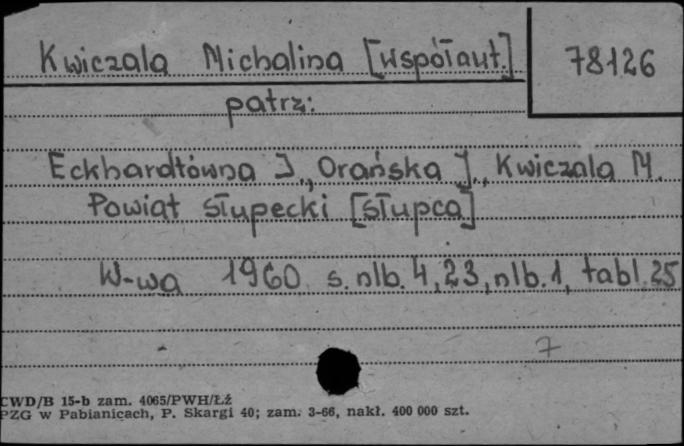 Kwiczala Michalina [współaut.] 78126
patrz:
Eckhardtówna J., Orańska J., Kwiczala M.
Powiat słupecki [Słupca]
W-wa 1960 s. nlb. 4, 23, nlb. 1, tabl. 25
7
CWD/B 15-b zam. 4065/PWH/Łź
PZG w Pabianicach, P. Skargi 40; zam. 3-66, nakł. 400 000 szt.